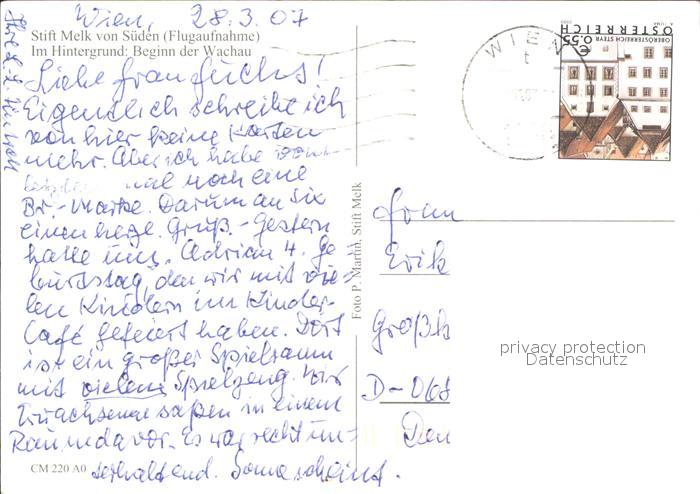 Wien, 28.3.07
Stift Melk von Süden (Flugaufnahme)
Im Hintergrund: Beginn der Wachau
Liebe Frau Fuchs!
Eigentlich schreibe ich
von hier keine Karten
mehr. Aber ich habe
mal noch eine
Br.-Marke. Darum an Sie
einen herzl. Gruß. - Gestern
hatte uns. Adrian 4. Ge-
burtstag, den wir mit vie-
len Kindern im Kinder-
Café gefeiert haben. Dort
ist ein großer Spielraum
mit vielem Spielzeug. Wir
Erwachsene saßen in einem
Raum davor. Es war recht un-
terhaltend. Sonne scheint.
CM 220 A0
Foto P. Martin, Stift Melk
WIEN
ÖSTERREICH
€ 0,55
OBERÖSTERREICH STEYR
A. TUMA
Frau
Erik
Großh
D-068
privacy protection
Datenschutz